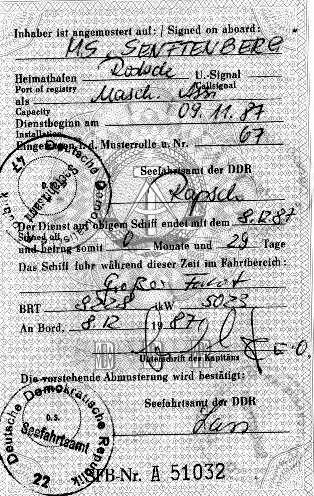 Inhaber ist angemustert auf: / Signed on aboard:
MS. SENFTENBERG
Heimathafen Rostock U.-Signal
Port of registry Callsignal
als Masch. Ass
Capacity
Dienstbeginn am 09.11.87
Installation
Eingetragen i. d. Musterrolle u. Nr. 67
Seefahrtsamt der DDR
Der Dienst auf obigem Schiff endet mit dem 8.12.87
Signed off
und betrug somit 0 Monate und 29 Tage
Das Schiff fuhr während dieser Zeit im Fahrtbereich:
Großer Fahrt
BRT 8528 ikW 5023
An Bord, 8.12 1987
Unterschrift des Kapitäns
Die vorstehende Abmusterung wird bestätigt:
Deutsche Demokratische Republik
D.S.
Seefahrtsamt
22
Seefahrtsamt der DDR
SFB-Nr. A 51032